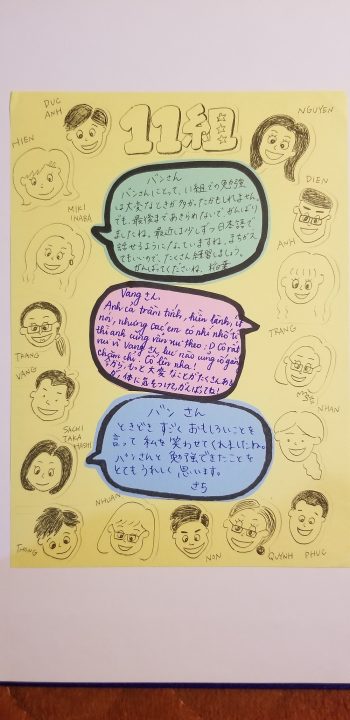 DUC ANH
NGUYEN
HIEN
11組
DIEN
MIKI INABA
ANH
THANG
TRANG
VANG
NHAN
SACHI TAKAHASHI
THANG
NHUAN
NON
QUYNH
PHUC
バンさん
バンさんにとって、11組での勉強
は大変なときがあったかもしれません。
でも、最後まであきらめないで、がんばり
ましたね。最近は少しずつ日本語で
話せるようになっていますね。まちがえ
てもいいので、たくさん練習しましょう。
がんばってくださいね。
Vang さん、
Anh cả trầm tính, hiền lành, ít
nói, nhưng các em có nhí nhố tí
thì anh cũng vẫn vui theo :D Cô rất
vui vì Vang さん lúc nào cũng cố gắng
chăm chỉ! Cố lên nha!
今から、もっと大変なことがたくさんある
体に気をつけて、がんばってね!
バンさん
ときどき すごく おもしろいことを
言って 私を笑わせてくれましたね。
バンさんと 勉強できたことを
とてもうれしく 思います。
さち